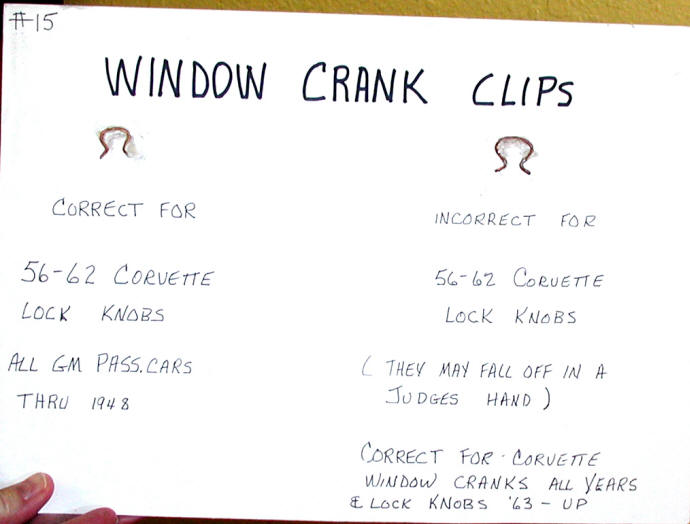 #15
WINDOW CRANK CLIPS
CORRECT FOR
56-62 CORVETTE
LOCK KNOBS
ALL GM PASS. CARS
THRU 1948
INCORRECT FOR
56-62 CORVETTE
LOCK KNOBS
( THEY MAY FALL OFF IN A
JUDGES HAND )
CORRECT FOR · CORVETTE
WINDOW CRANKS ALL YEARS
& LOCK KNOBS '63 - UP